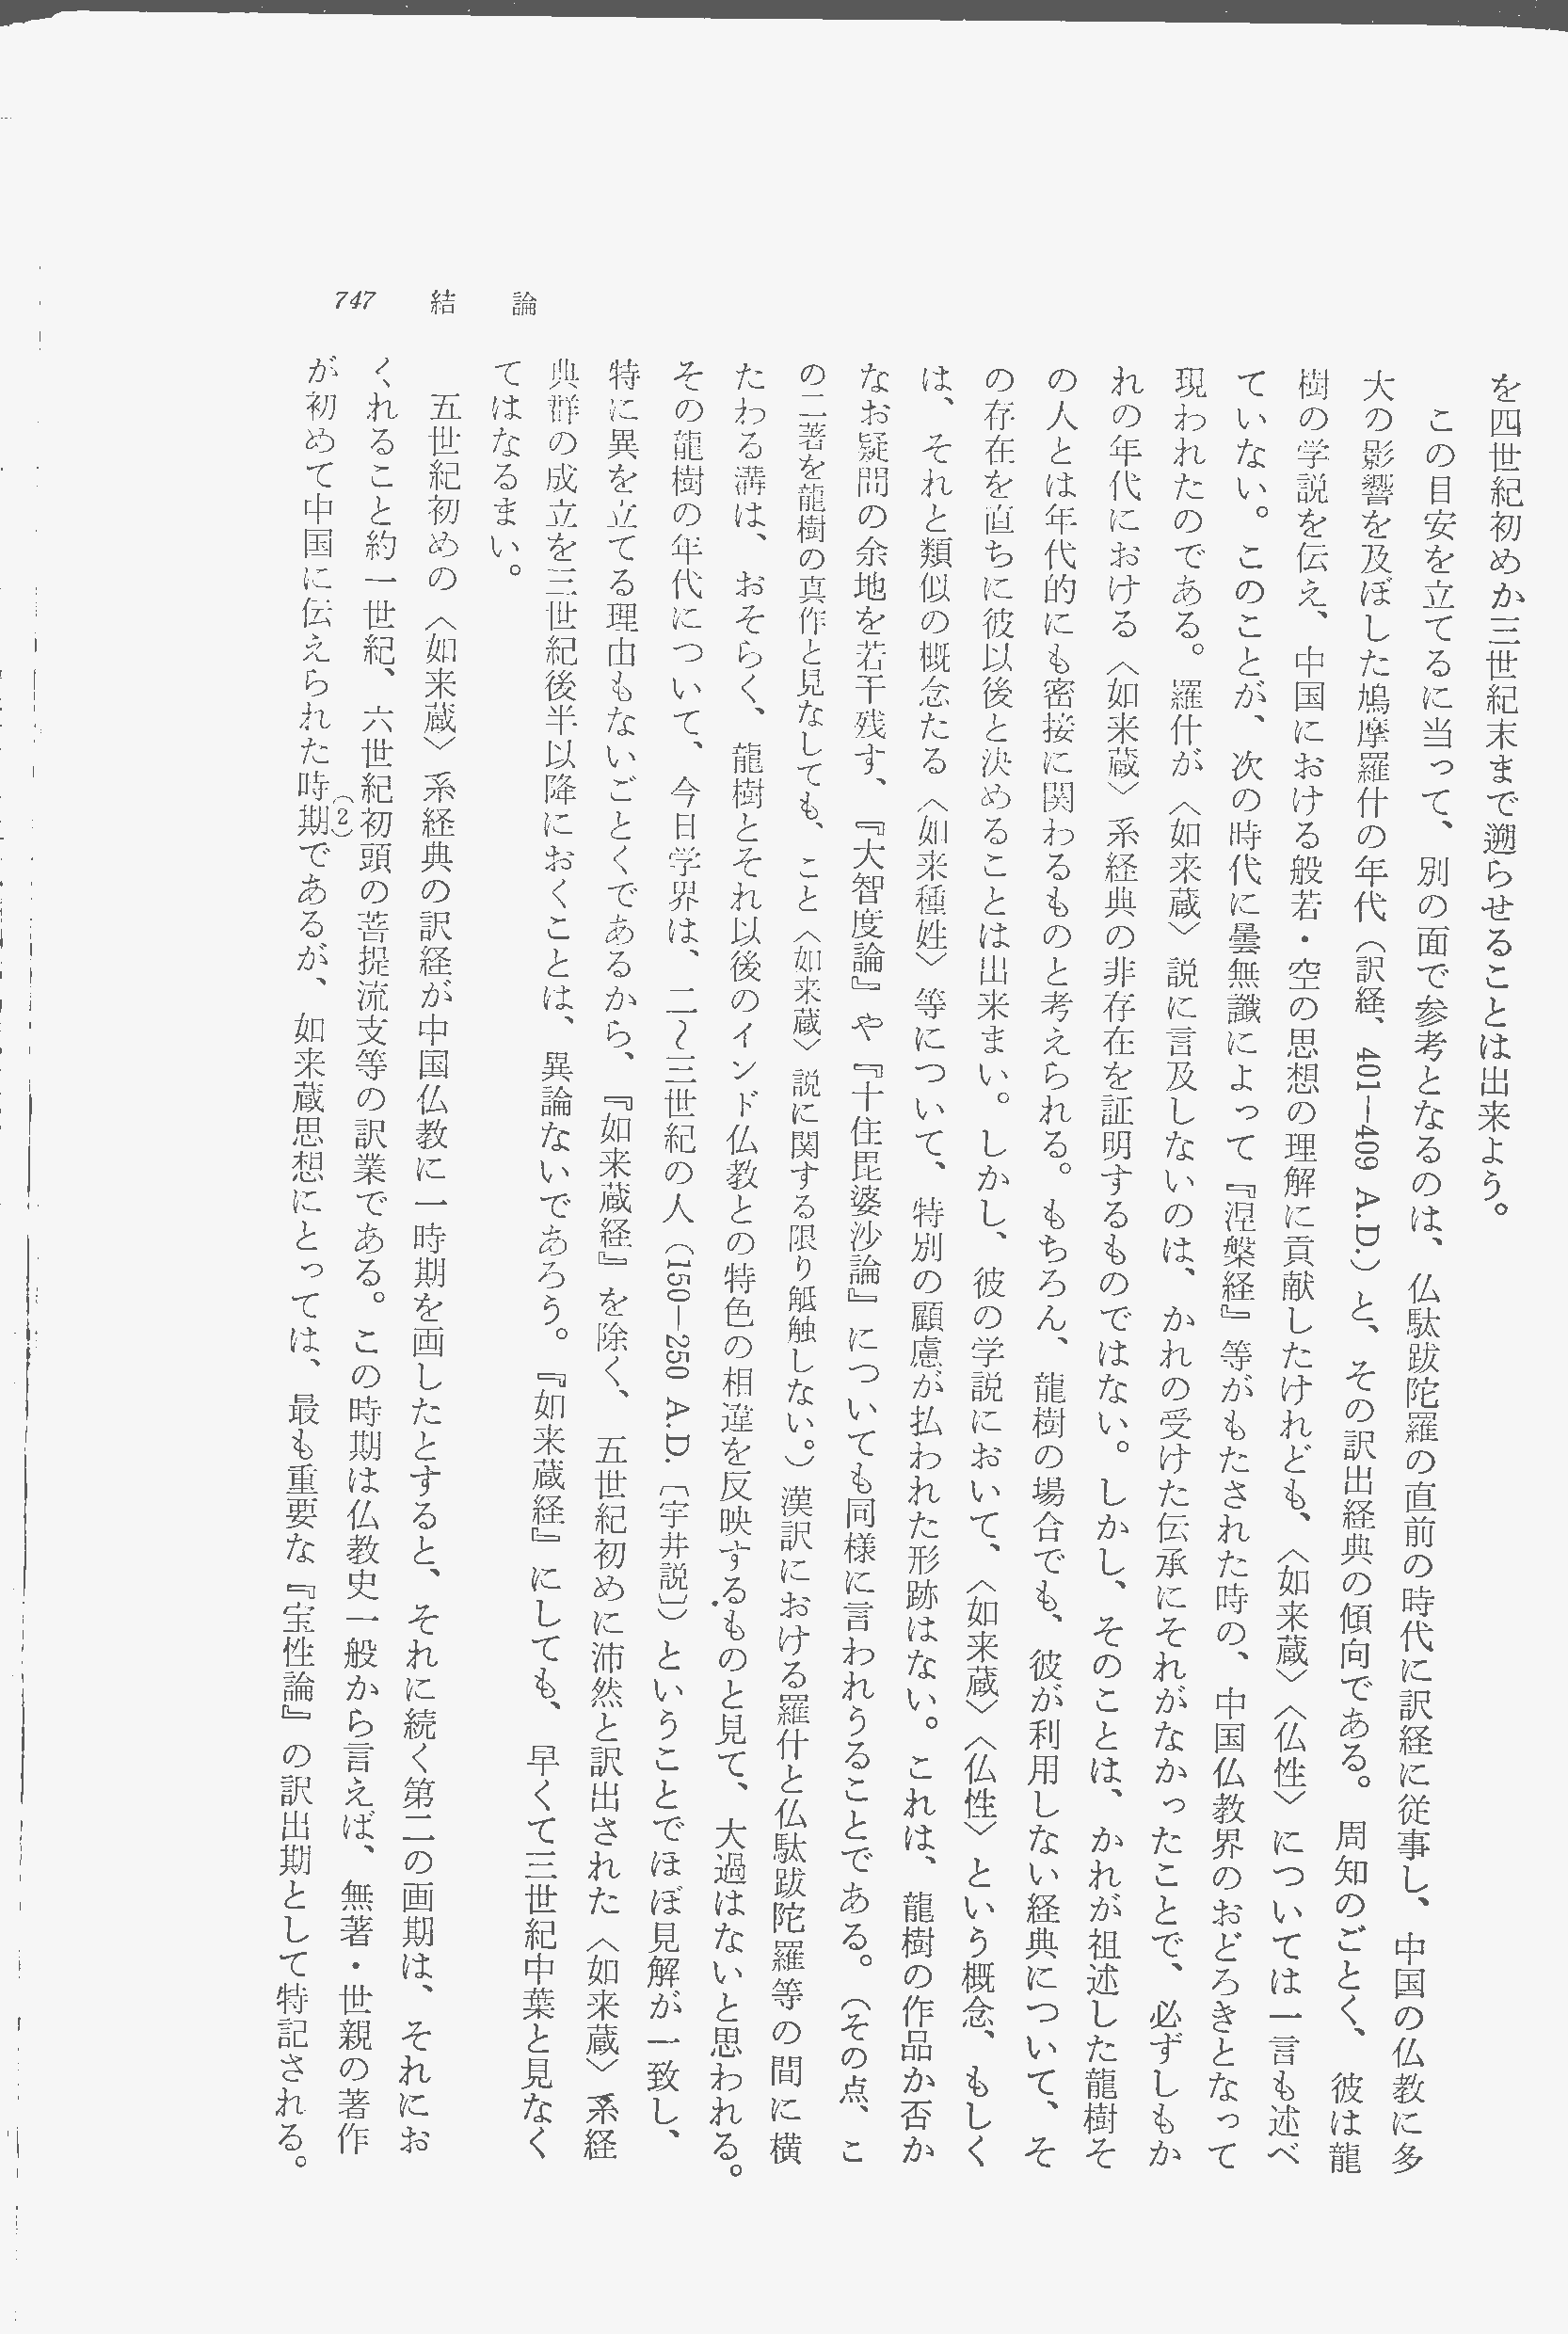 747　結　論
を四世紀初めか三世紀末まで遡らせることは出来よう。
この目安を立てるに当って、別の面で参考となるのは、仏駄跋陀羅の直前の時代に訳経に従事し、中国の仏教に多
大の影響を及ぼした鳩摩羅什の年代（訳経、401―409 A.D.）と、その訳出経典の傾向である。周知のごとく、彼は龍
樹の学説を伝え、中国における般若・空の思想の理解に貢献したけれども、〈如来蔵〉〈仏性〉については一言も述べ
ていない。このことが、次の時代に曇無讖によって『涅槃経』等がもたされた時の、中国仏教界のおどろきとなって
現われたのである。羅什が〈如来蔵〉説に言及しないのは、かれの受けた伝承にそれがなかったことで、必ずしもか
れの年代における〈如来蔵〉系経典の非存在を証明するものではない。しかし、そのことは、かれが祖述した龍樹そ
の人とは年代的にも密接に関わるものと考えられる。もちろん、龍樹の場合でも、彼が利用しない経典について、そ
の存在を直ちに彼以後と決めることは出来まい。しかし、彼の学説において、〈如来蔵〉〈仏性〉という概念、もしく
は、それと類似の概念たる〈如来種姓〉等について、特別の顧慮が払われた形跡はない。これは、龍樹の作品か否か
なお疑問の余地を若干残す、『大智度論』や『十住毘婆沙論』についても同様に言われうることである。（その点、こ
の二著を龍樹の真作と見なしても、こと〈如来蔵〉説に関する限り觝触しない。）漢訳における羅什と仏駄跋陀羅等の間に横
たわる溝は、おそらく、龍樹とそれ以後のインド仏教との特色の相違を反映するものと見て、大過はないと思われる。
その龍樹の年代について、今日学界は、二～三世紀の人（150―250 A.D.〔宇井説〕）ということでほぼ見解が一致し、
特に異を立てる理由もないごとくであるから、『如来蔵経』を除く、五世紀初めに沛然と訳出された〈如来蔵〉系経
典群の成立を三世紀後半以降におくことは、異論ないであろう。『如来蔵経』にしても、早くて三世紀中葉と見なく
てはなるまい。
五世紀初めの〈如来蔵〉系経典の訳経が中国仏教に一時期を画したとすると、それに続く第二の画期は、それにお
くれること約一世紀、六世紀初頭の菩提流支等の訳業である。この時期は仏教史一般から言えば、無著・世親の著作
が初めて中国に伝えられた時期（2）であるが、如来蔵思想にとっては、最も重要な『宝性論』の訳出期として特記される。